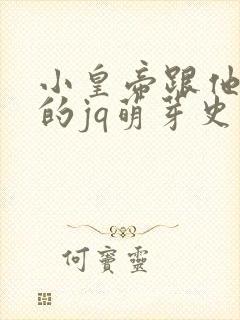 小皇帝跟他
的jq萌芽史
何寶靈